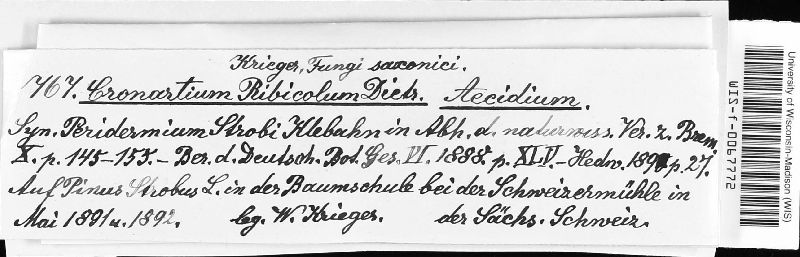 Krieger, Fungi saxonici.
767. Cronartium Ribicolum Dietr. Aecidium.
Syn. Peridermium Strobi Klebahn in Abh. d. naturwiss. Ver. z. Brem.
X. p. 145-155.- Ber. d. Deutsch. Bot. Ges. VI. 1888. p. XLV.- Hedw. 1890 p. 27.
Auf Pinus Strobus L. in der Baumschule bei der Schweizermühle in
Mai 1891 u. 1892. leg. W. Krieger. der Sächs. Schweiz.
University of Wisconsin-Madison (WIS)
WIS-f-0067772